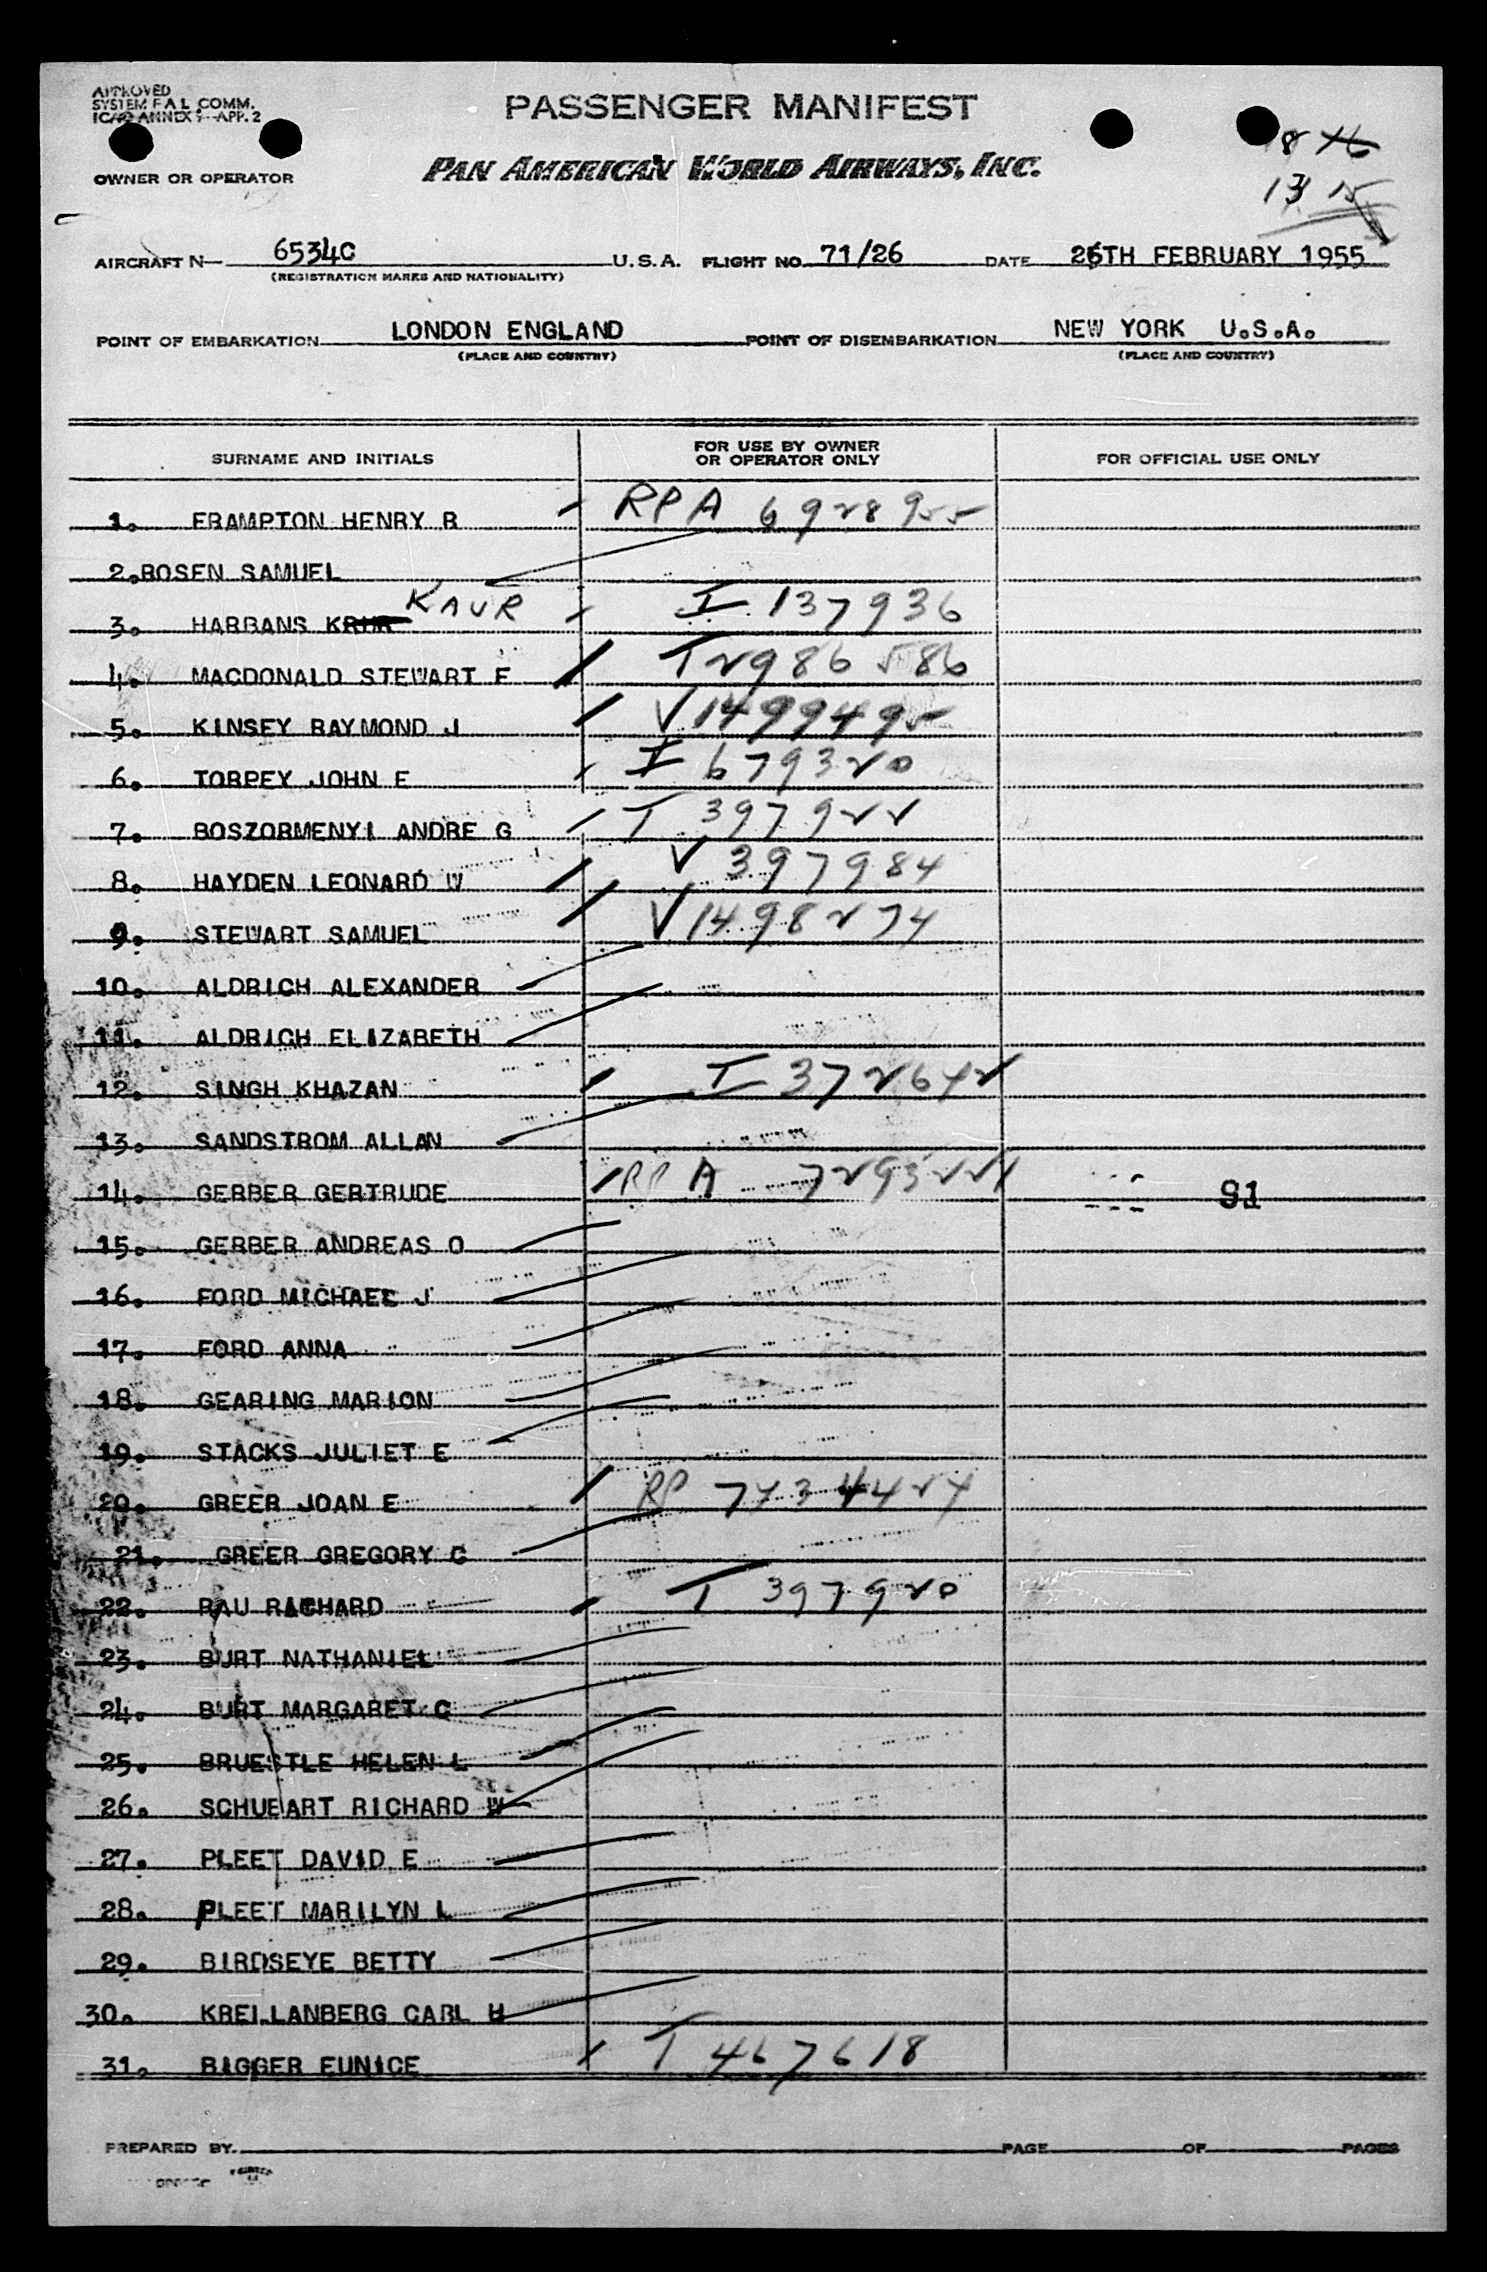 APPROVED
SYSTEM F A L COMM.
ICAO ANNEX 9 APP. 2
PASSENGER MANIFEST
PAN AMERICAN WORLD AIRWAYS, INC.
OWNER OR OPERATOR
8
13 15
AIRCRAFT N— 6534C U.S.A. FLIGHT NO. 71/26 DATE 26TH FEBRUARY 1955
(REGISTRATION MARKS AND NATIONALITY)
POINT OF EMBARKATION LONDON ENGLAND POINT OF DISEMBARKATION NEW YORK U.S.A.
(PLACE AND COUNTRY) (PLACE AND COUNTRY)
SURNAME AND INITIALS FOR USE BY OWNER OR OPERATOR ONLY FOR OFFICIAL USE ONLY
1. FRAMPTON HENRY R RPA 6928955
2. BOSEN SAMUEL
3. HARBANS KAUR I 137936
4. MACDONALD STEWART F T2986586
5. KINSEY RAYMOND J V1499495
6. TORPEY JOHN E I 679320
7. BOSZORMENYI ANDRE G T 397922
8. HAYDEN LEONARD W V 397984
9. STEWART SAMUEL V1498274
10. ALDRICH ALEXANDER
11. ALDRICH ELIZABETH
12. SINGH KHAZAN I 372642
13. SANDSTROM ALLAN
14. GERBER GERTRUDE RPA 7293221 91
15. GERBER ANDREAS O
16. FORD MICHAEL J
17. FORD ANNA
18. GEARING MARION
19. STACKS JULIET E
20. GREER JOAN E RP 7434424
21. GREER GREGORY C
22. RAU RICHARD T 397920
23. BURT NATHANIEL
24. BURT MARGARET C
25. BRUESTLE HELEN L
26. SCHUBART RICHARD W
27. PLEET DAVID E
28. PLEET MARILYN L
29. BIRDSEYE BETTY
30. KREILANBERG CARL H
31. BIGGER EUNICE T 467618
PREPARED BY. PAGE OF PAGES